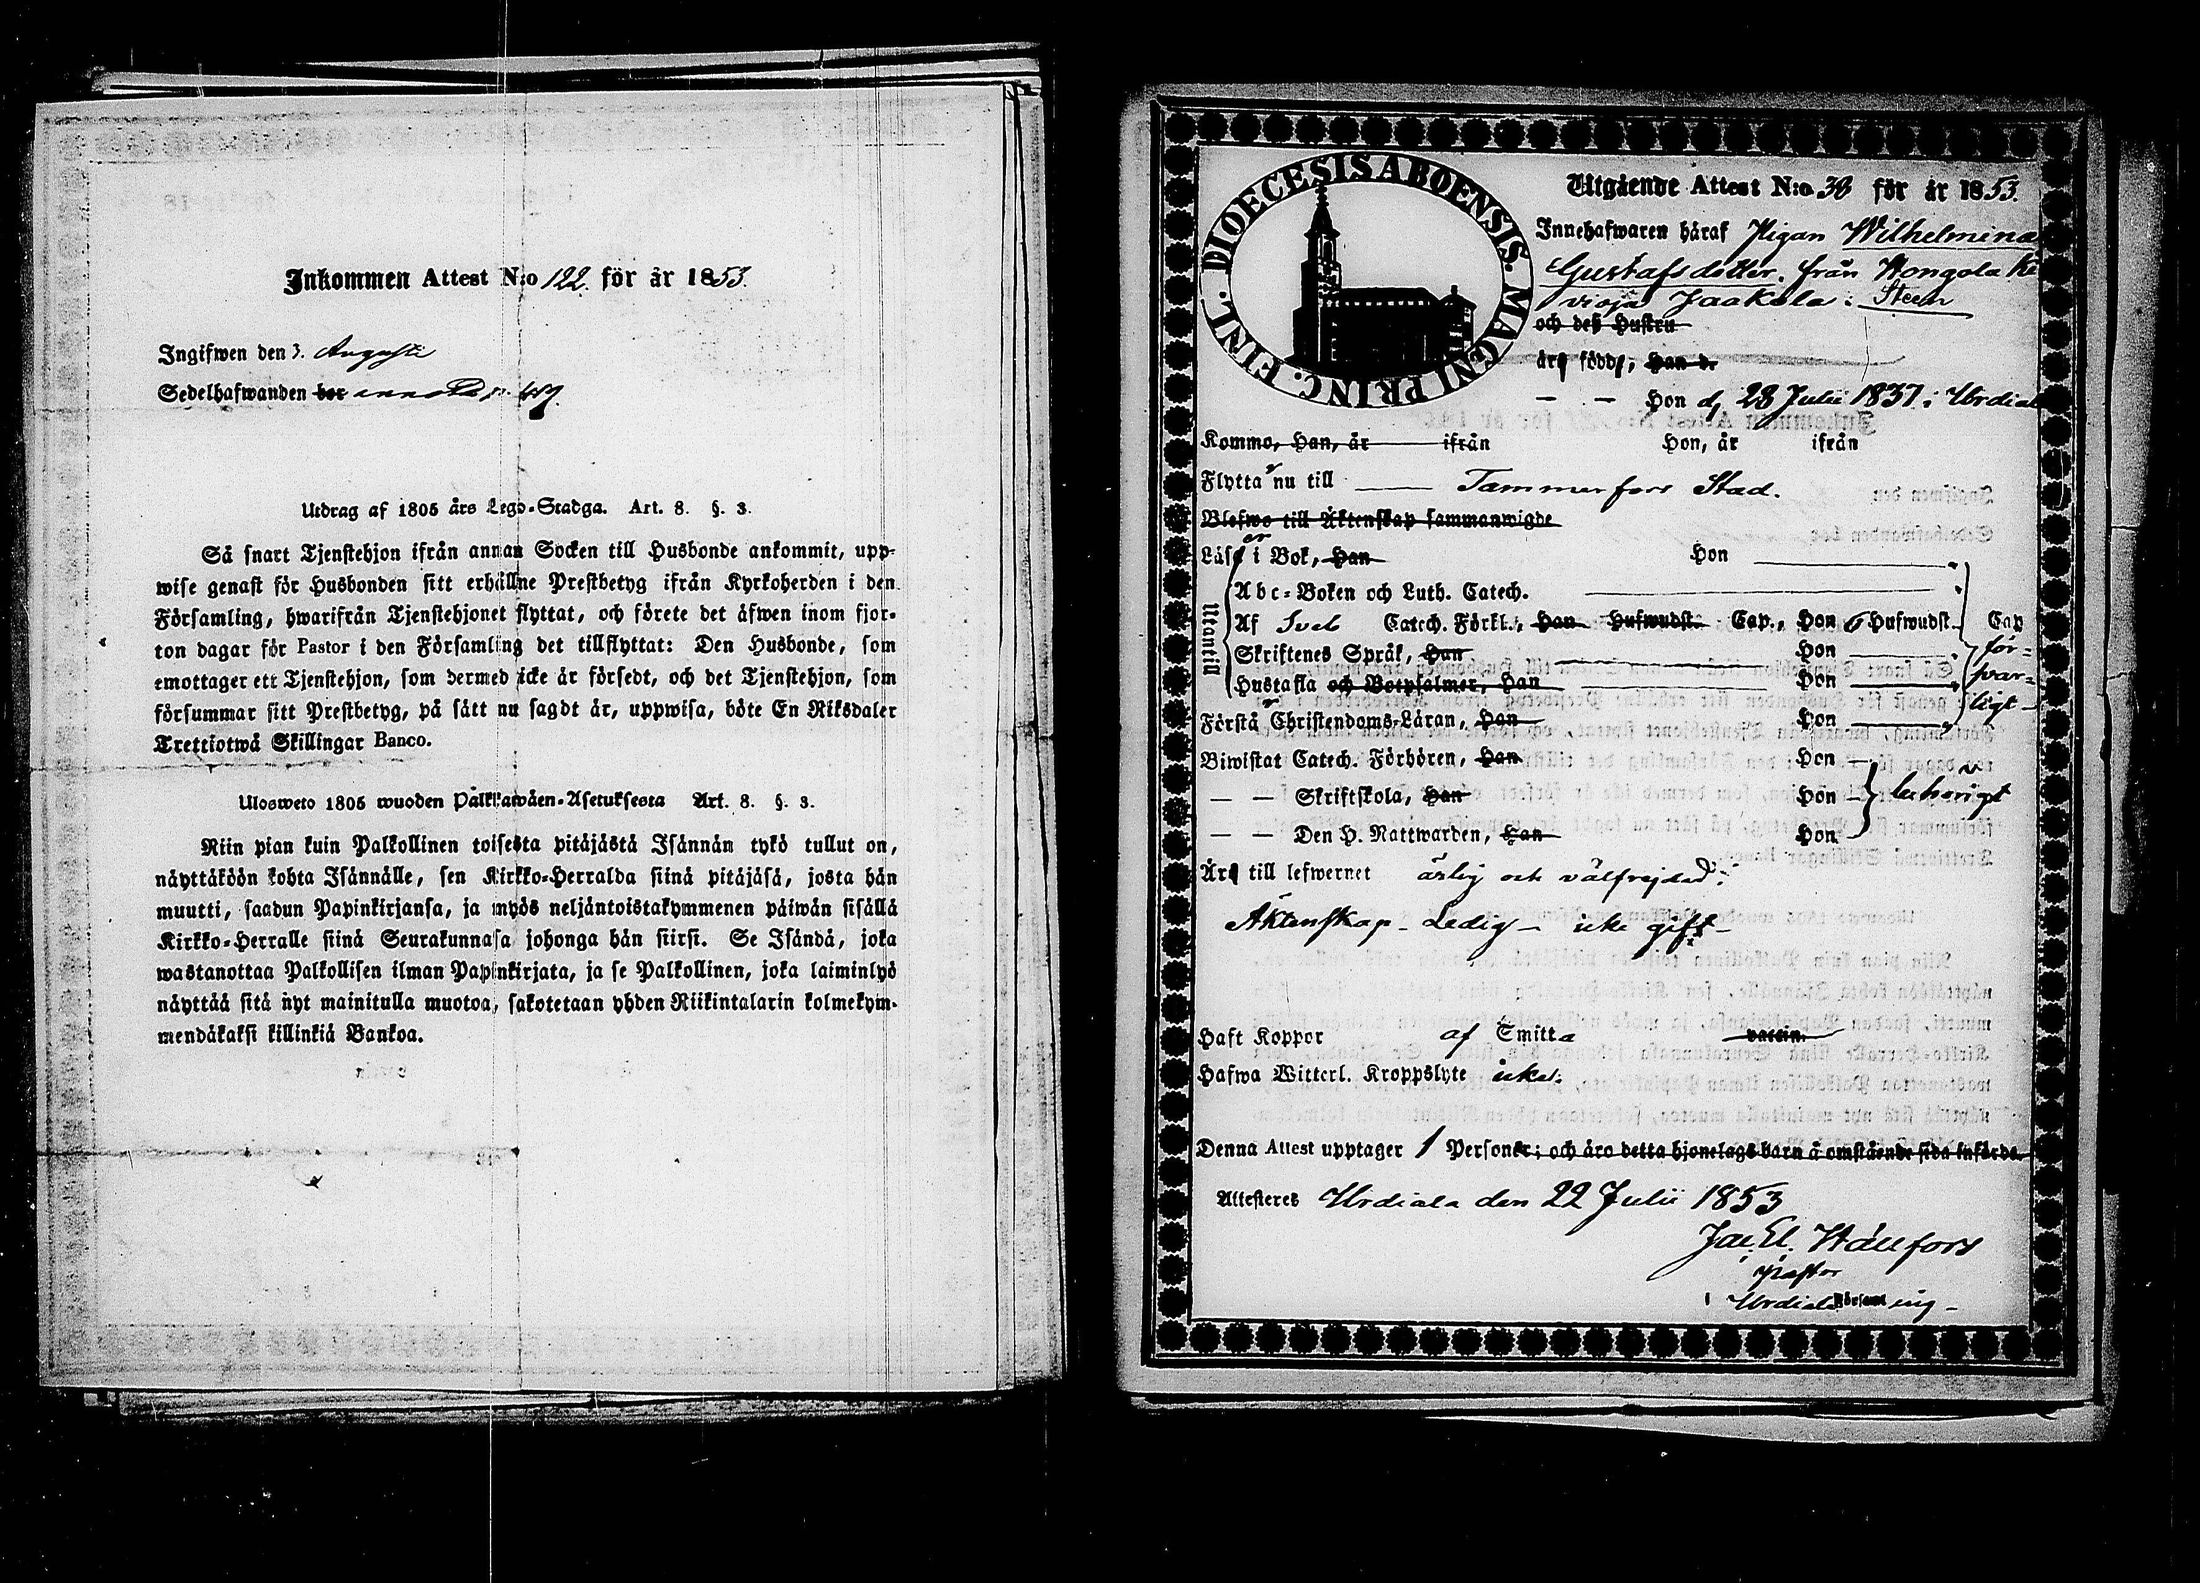 Inkommen Attest N:o 122. för år 1853.
Ingifwen den 3. Augusti
Sedelhafwanden bor annoteras p. 419.
Utdrag af 1805 års Lego-Stadga. Art. 8. §. 3.
Så snart Tjenstehjon ifrån annan Socken till Husbonde ankommit, upp-
wise genast för Husbonden sitt erhållne Prestbetyg ifrån Kyrkoherden i den
Församling, hwarifrån Tjenstehjonet flyttat, och förete det äfwen inom fjor-
ton dagar för Pastor i den Församling det tillflyttat: Den Husbonde, som
emottager ett Tjenstehjon, som dermed icke är försedt, och det Tjenstehjon, som
försummar sitt Prestbetyg, på sätt nu sagdt är, uppwisa, böte En Riksdaler
Trettiotwå Skillingar Banco.
Ulosweto 1805 wuoden Palkkawäen-Asetuksesta Art. 8. §. 3.
Niin pian kuin Palkollinen toisesta pitäjästä Isännän tykö tullut on,
näyttäköön kohta Isännälle, sen Kirkko-Herralda siinä pitäjäsä, josta hän
muutti, saadun Papinkirjansa, ja myös neljäntoistakymmenen päiwän sisällä
Kirkko-Herralle siinä Seurakunnasa johonga hän siirsi. Se Isändä, joka
wastanottaa Palkollisen ilman Papinkirjata, ja se Palkollinen, joka laiminlyö
näyttää sitä nyt mainitulla muotoa, sakotetaan yhden Riikintalarin kolmekym-
mendäkaksi killinkiä Bankoa.
DIOECESIS ABOENSIS. MAGNI PRINC. FINL.
Utgående Attest N:o 38 för år 1853.
Innehafwaren häraf Pigan Wilhelmina
Gustafsdotter. från Hongola Ke
vioja Jaakola. Steen
och deß Hustru
äro födde, Han d.
— — Hon d. 28 Julii 1837 i Urdiala
Kommo, Han, år ifrån Hon, år ifrån
Flyttar nu till Tammerfors Stad.
Blefwo till Äktenskap sammanwigde
Läser i Bok, Han Hon
Utantill
Abc-Boken och Luth. Catech.
Af Sveb Catech. Förkl., Han Hufwudst. Cap., Hon 6 Hufwudst. Cap
Skriftenes Språk, Han Hon för-
Hustafla och Botpsalmer, Han Hon svar-
Förstår Christendoms-Läran, Han Hon ligt
Biwistat Catech. Förhören, Han Hon
— — Skriftskola, Han Hon behörigt
— — Den H. Nattwarden, Han Hon
Är till lefwernet ärlig och välfrejdad:
Äktenskap - Ledig - icke gift -
Haft Koppor af Smitta vaccin.
Hafwa Witterl. Kroppslyte icke.
Denna Attest upptager 1 Personer; och äro detta hjonelags barn å omstående sida införde.
Attesteres Urdiala den 22 Julii 1853
Jac. El. Hällfors
Pastor
i Urdiala Församling -